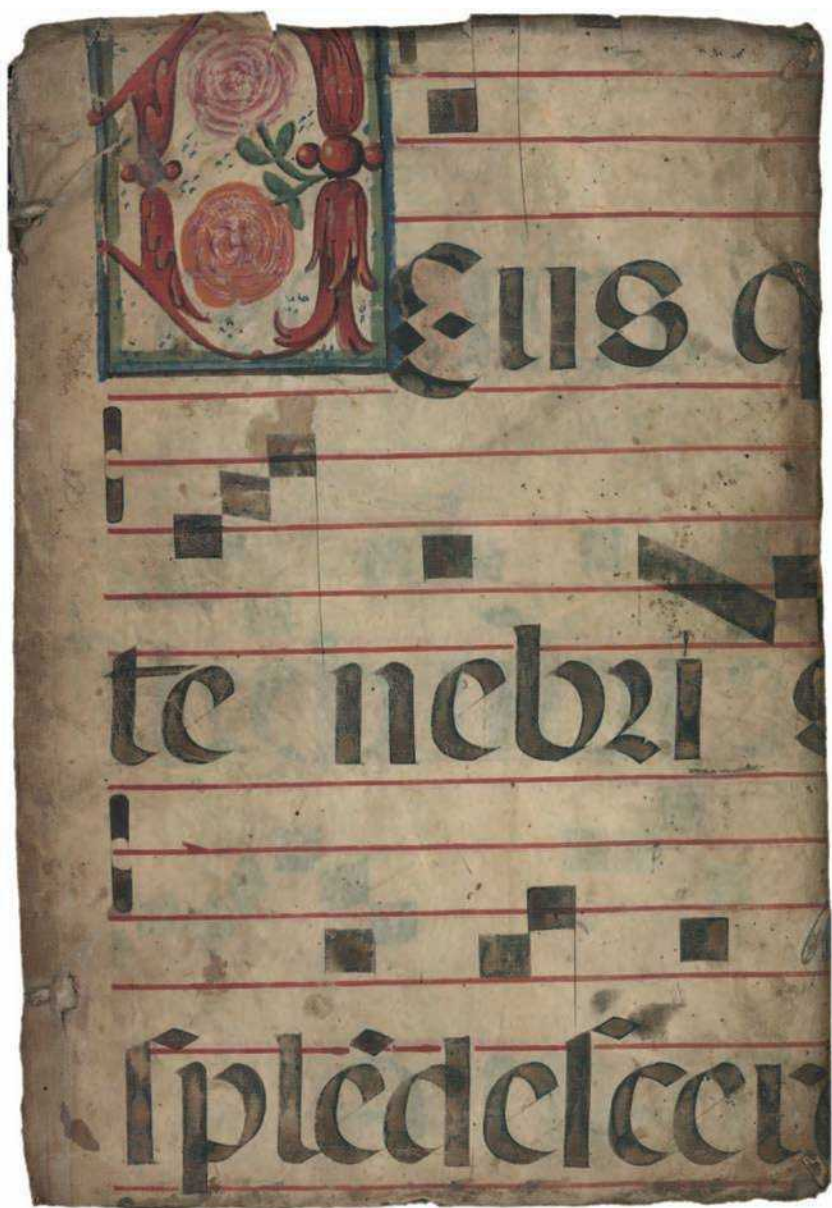 DEus q
te nebri s
ſplēdeſce